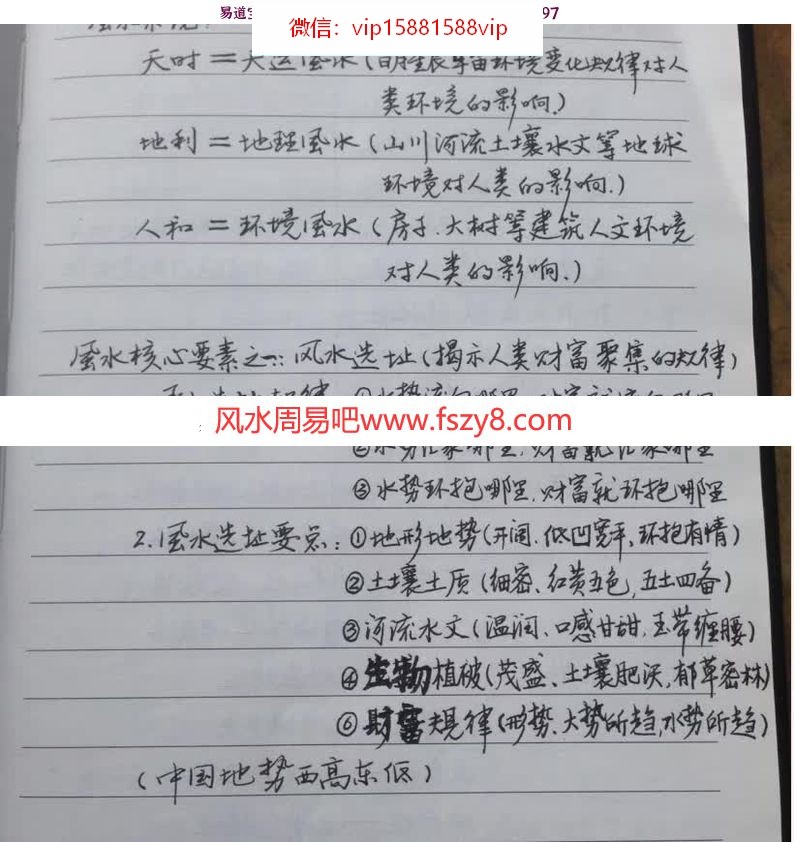 易道宝
97
微信：vip15881588vip
天时＝天运风水（日月星辰宇宙环境变化规律对人
类环境的影响.）
地利＝地理风水（山川河流土壤水文等地球
环境对人类的影响.）
人和＝环境风水（房子.大树等建筑人文环境
对人类的影响.）
风水核心要素之一：风水选址（揭示人类财富聚集的规律）
风水周易吧www.fszy8.com
③水势环抱哪里,财富就环抱哪里
2.风水选址要点：①地形地势（开阔.低凹宽平、环抱有情）
②土壤土质（细密、红黄五色,五土四备）
③河流水文（温润、口感甘甜,玉带缠腰）
④生物植破（茂盛、土壤肥沃,郁草密林）
⑥财富规律（形势、大势所趋,水势所趋）
（中国地势西高东低）